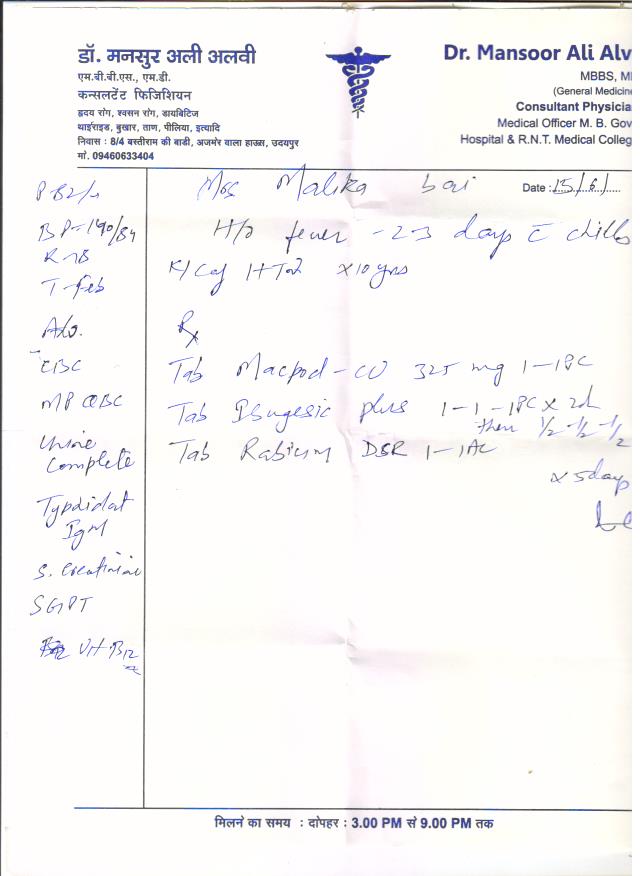 डॉ. मनसुर अली अलवी
एम.बी.बी.एस., एम.डी.
कन्सलटेंट फिजिशियन
हृदय रोग, श्वसन रोग, डायबिटिज
थाईराइड, बुखार, ताण, पीलिया, इत्यादि
निवास : 8/4 बस्तीराम की बाडी, अजमेर वाला हाऊस, उदयपुर
मो. 09460633404
Dr. Mansoor Ali Alv
MBBS, M
(General Medicine
Consultant Physicia
Medical Officer M. B. Gov
Hospital & R.N.T. Medical Colleg
Malika bai
Date : 15/6/
H/o fever - 2-3 days c̄ chills
x 10 yrs
Rx
Tab Macpod-CV 325 mg 1-1 PC
Tab Ibugesic plus 1-1-1 PC x 2d
then 1/2-1/2-1/2
Tab Rabium DSR 1-1 AC
x 5 day
BP-190/84
T-Feb
CBC
MP QBC
Urine
Complete
Typhidot
IgM
S. Creatinine
SGPT
Vit B12
मिलने का समय : दोपहर : 3.00 PM से 9.00 PM तक